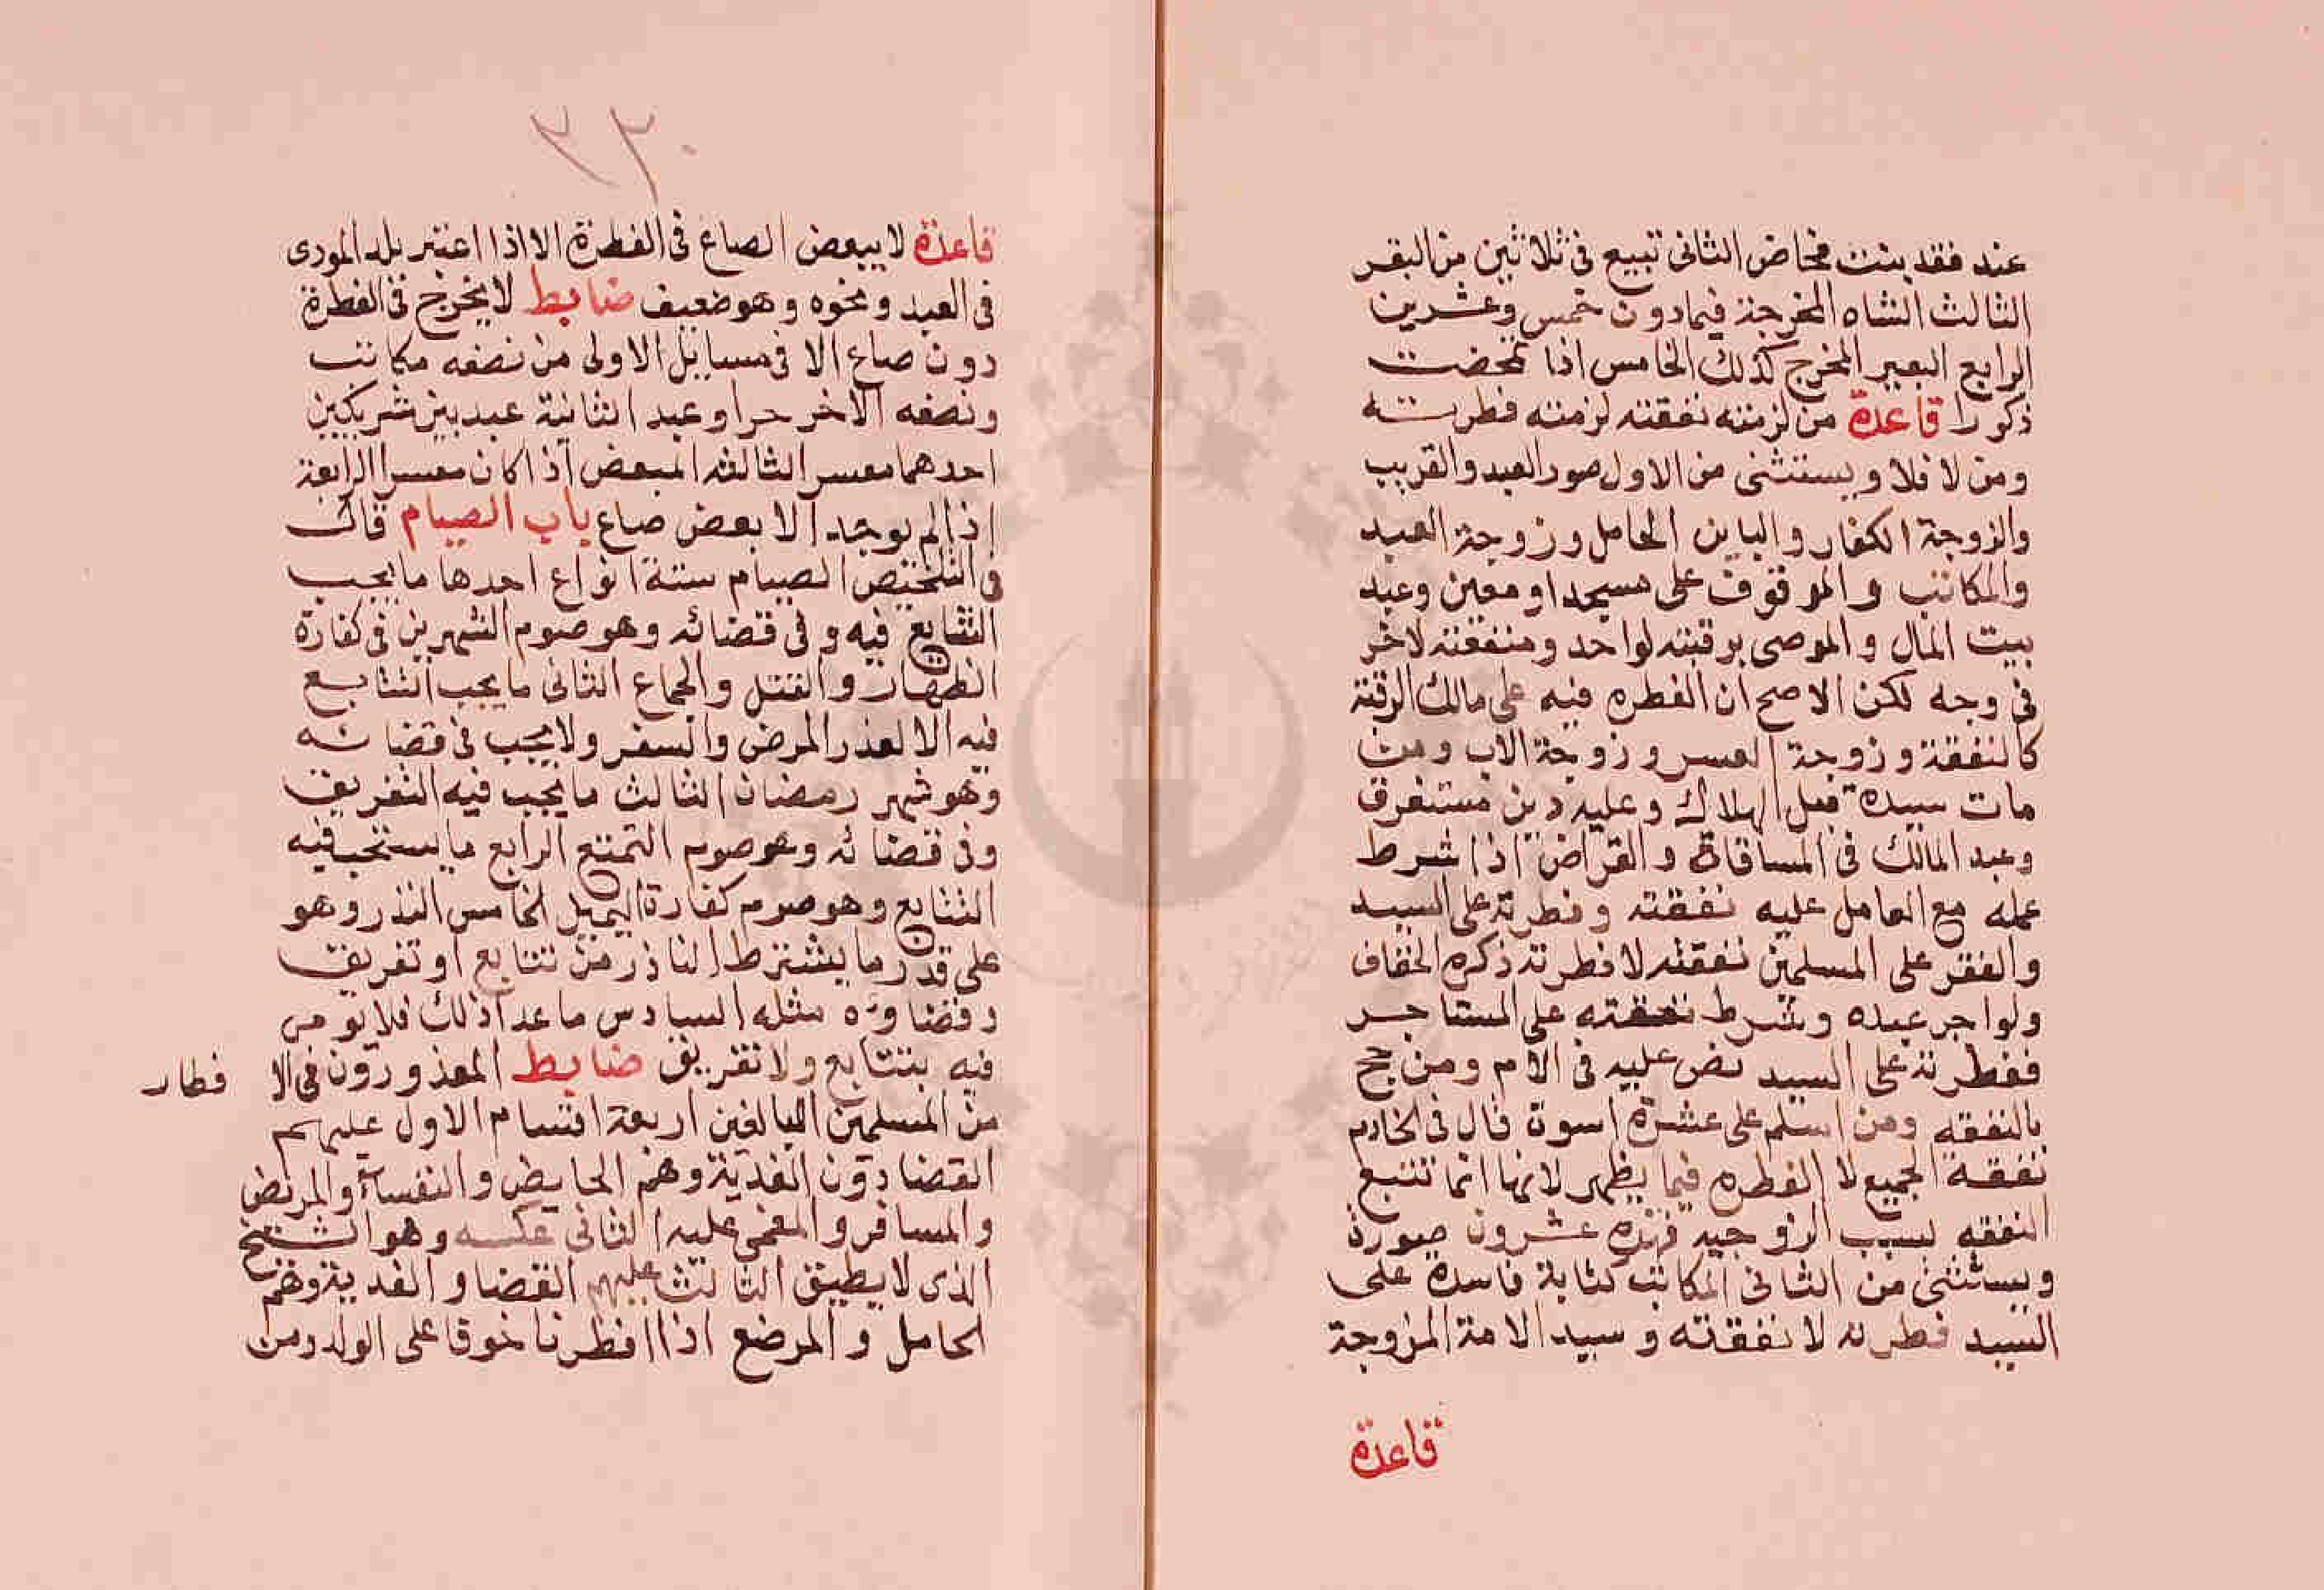 عند فقد بنت مخاض الثانى تبيع فى ثلاثين من البقر
الثالث الشاه المخرجة فيما دون خمس وعشرين
الرابع البعير المخرج كذلك الخامس اذا تمحضت
ذكورا قاعدة من لزمته نفقته لزمته فطرته
ومن لا فلا ويستثنى من الاول صور العبد والقريب
والزوجة الكفار والباين الحامل وزوجة العبد
والمكاتب والموقوف على مسجد او معين وعبد
بيت المال والموصى برقبته لواحد ومنفعته لاخر
فى وجه لكن الاصح ان الفطره فيه على مالك الرقبة
كالنفقة وزوجة المعسر وزوجة الاب ومن
مات سيده قبل الهلاك وعليه دين مستغرق
وعبد المالك فى المساقاة والقراض اذا شرط
عمله مع العامل عليه نفقته وفطرته على السيد
والفقر على المسلمين نفقته لا فطرته ذكره الخفاف
ولو اجر عبده وشرط نفقته على المستاجر
ففطرته على السيد نص عليه فى الام ومن حج
بالنفقه ومن اسلم على عشرة اسوة قال فى الخادم
نفقة الجميع لا الفطره فيما يظهر لانها انما تتبع
النفقه بسبب الزوجيه فهذه عشرون صورة
ويستثنى من الثانى المكاتب كتابة فاسدة على
السيد فطرته لا نفقته وسيد الامة المزوجة
قاعدة
٢٣٠
قاعدة لا يبعض الصاع فى الفطرة الا اذا اعتبر بلد المودى
فى العبد ونحوه وهو ضعيف ضابط لا يخرج فى الفطرة
دون صاع الا فى مسايل الاولى من نصفه مكاتب
ونصفه الاخر حر او عبد الثانية عبد بين شريكين
احدهما معسر الثالثه المبعض اذا كان معسرا الرابعة
اذا لم يوجد الا بعض صاع باب الصيام قال
فى التلخيص الصيام ستة انواع احدها ما يجب
التتابع فيه وفى قضائه وهو صوم الشهرين فى كفارة
الظهار والقتل والجماع الثانى ما يجب التتابع
فيه الا لعذر المرض والسفر ولا يجب فى قضائه
وهو شهر رمضان الثالث ما يجب فيه التفريق
وفى قضائه وهو صوم التمتع الرابع ما يستحب فيه
التتابع وهو صوم كفارة اليمين الخامس النذر وهو
على قدر ما يشترط الناذر من تتابع او تفريق
وقضاوه مثله السادس ما عدا ذلك فلا يومر
فيه بتتابع ولا تفريق ضابط المعذورون فى الا فطار
من المسلمين البالغين اربعة اقسام الاول عليهم
القضا دون الفدية وهم الحايض والنفساء والمريض
والمسافر والمغمى عليه الثانى عكسه وهو الشيخ
الذى لا يطيق الثالث عليهم القضا والفدية وهم
الحامل والمرضع اذا افطرتا خوفا على الولد ومن